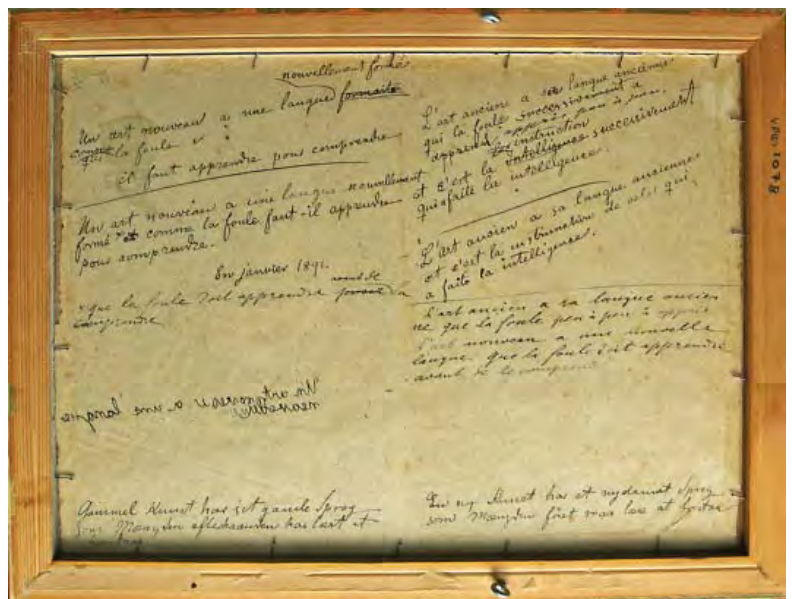 nouvellement formé
Un art nouveau a une langue formaite
comme
que la foule
il faut apprendre pour comprendre
Un art nouveau a une langue nouvellement
formé et comme la foule faut-il apprendre
pour comprendre.
En janvier 1891.
que la foule doit apprendre avant de la
comprendre
Un art nouveau a une langue
Gammel Kunst har set gamle Sprog
som Mængden efterhaanden har lært at
L'art ancien a sa langue ancienne
qui la foule successivement a
apprend peu à peu.
instruction
et c'est la intelligence successivement
qui a faite la intelligence.
L'art ancien a sa langue ancienne
et c'est la instruction de celui qui
a faite la intelligence.
L'art ancien a sa langue ancien
ne que la foule peu à peu à appris
L'art nouveau a une nouvelle
langue que la foule doit apprendre
avant de le comprend
En ny Kunst har et nydannet Sprog
som Mængden først maa lære at